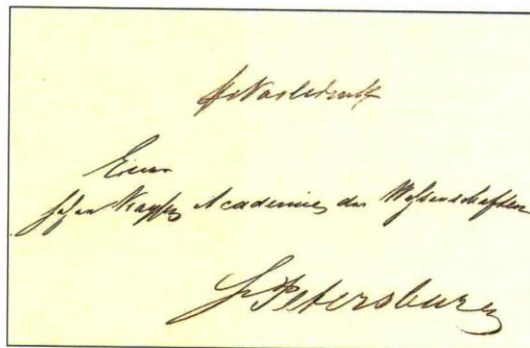 Einer
hohen Kayser Academie der Wissenschaften
St Petersburg